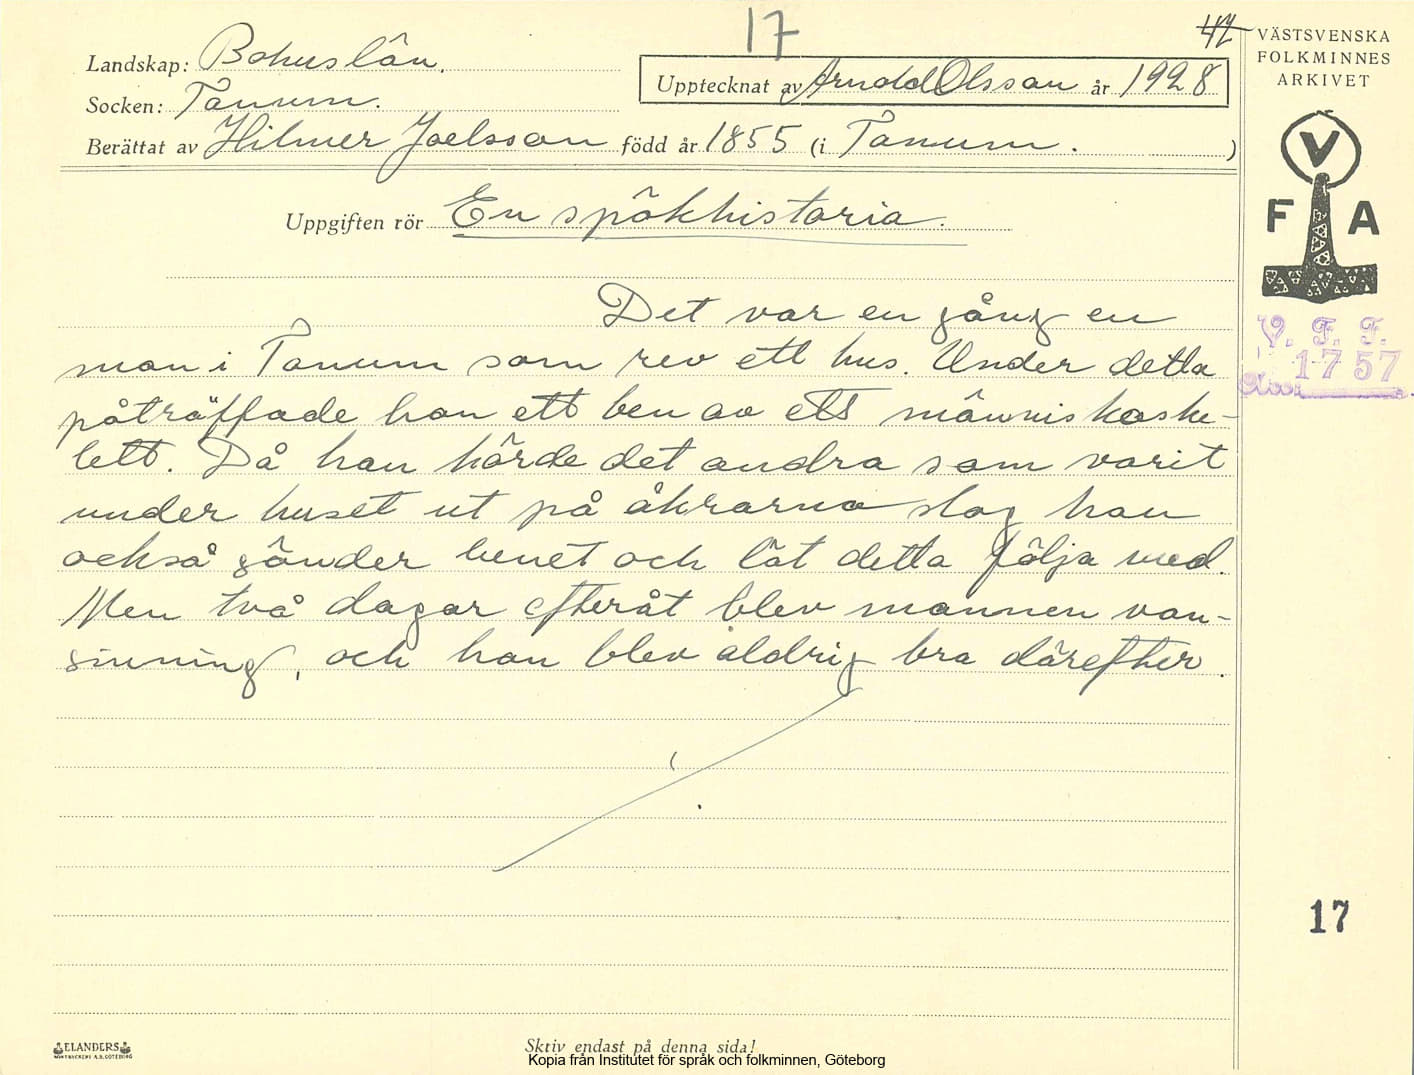 17
42
Landskap: Bohuslän.
Upptecknat av Arnold Olsson år 1928
Socken: Tanum.
Berättat av Hilmer Joelsson född år 1855 (i Tanum. )
Uppgiften rör En spökhistoria.
Det var en gång en
man i Tanum som rev ett hus. Under detta
påträffade han ett ben av ett människoske-
lett. Då han körde det andra som varit
under huset ut på åkrarna slog han
också sönder benet och lät detta följa med.
Men två dagar efteråt blev mannen van-
sinnig, och han blev aldrig bra därefter.
VÄSTSVENSKA
FOLKMINNES
ARKIVET
V
F A
V. F. F.
1757
17
ELANDERS
BOKTRYCKERI A.B. GÖTEBORG
Skriv endast på denna sida!
Kopia från Institutet för språk och folkminnen, Göteborg